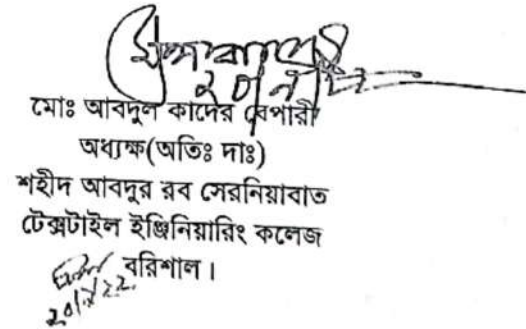 মোঃ আবদুল কাদের বেপারী
অধ্যক্ষ(অতিঃ দাঃ)
শহীদ আবদুর রব সেরনিয়াবাত
টেক্সটাইল ইঞ্জিনিয়ারিং কলেজ
বরিশাল।